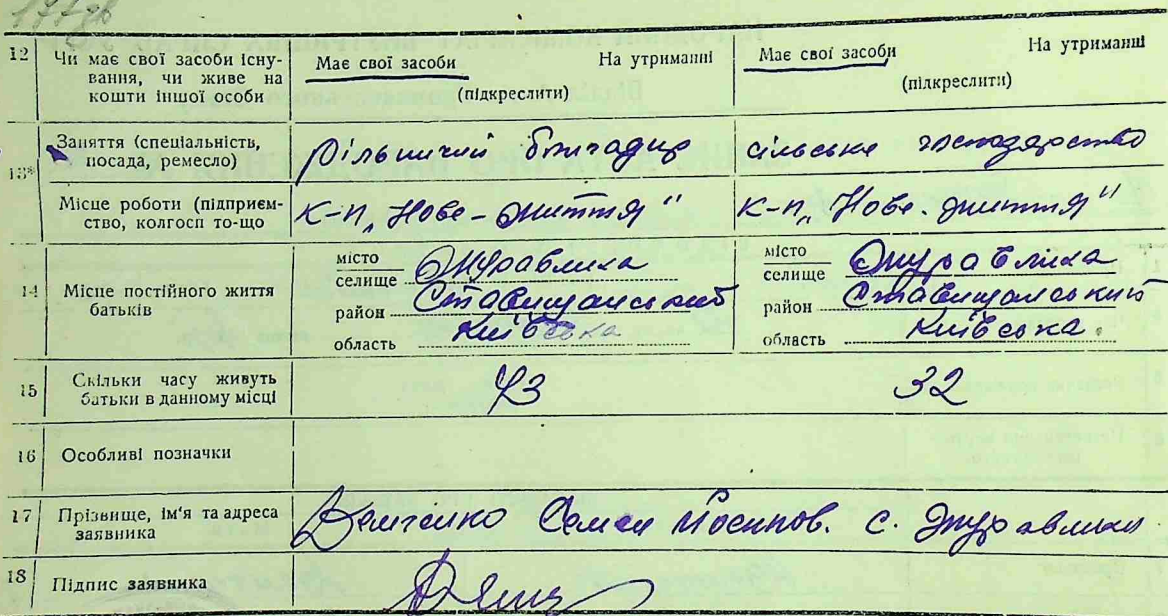 177 зв
12 Чи має свої засоби існування, чи живе на кошти іншої особи Має свої засоби На утриманні Має свої засоби На утриманні
(підкреслити) (підкреслити)
13* Заняття (спеціальність, посада, ремесло) рільничий бригадир сільське господарство
Місце роботи (підприємство, колгосп то-що К-п „Нове-життя" К-п „Нове-життя"
14 Місце постійного життя батьків
місто селище Журавлиха місто селище Журавлиха
район Ставищанський район Ставищанський
область Київська область Київська.
15 Скільки часу живуть батьки в данному місці 43 32
16 Особливі позначки
17 Прізвище, ім'я та адреса заявника Семен Йосипов. с. Журавлиха
18 Підпис заявника